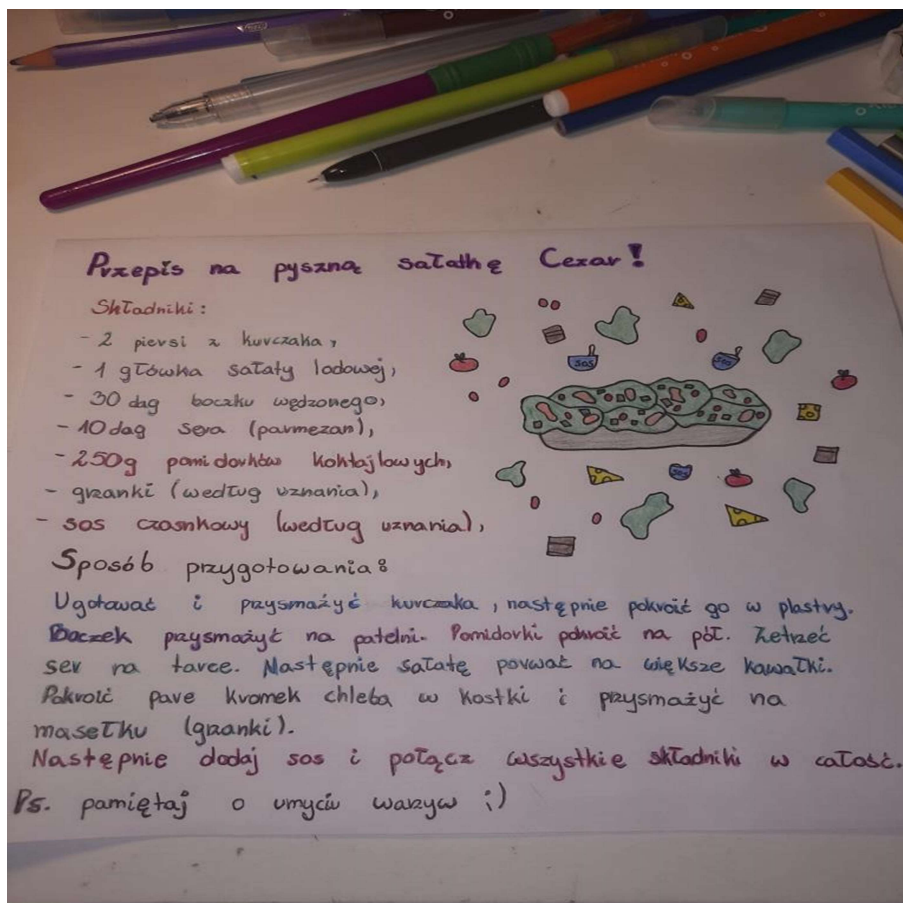 Przepis na pyszną sałatkę Cezar!
Składniki:
- 2 piersi z kurczaka,
- 1 główka sałaty lodowej,
- 30 dag boczku wędzonego,
- 10 dag sera (parmezan),
- 250g pomidorków koktajlowych,
- grzanki (według uznania),
- sos czosnkowy (według uznania),
sos
sos
sos
Sposób przygotowania:
Ugotować i przysmażyć kurczaka, następnie pokroić go w plastry.
Boczek przysmażyć na patelni. Pomidorki pokroić na pół. Zetrzeć
ser na tarce. Następnie sałatę porwać na większe kawałki.
Pokroić parę kromek chleba w kostki i przysmażyć na
masełku (grzanki).
Następnie dodaj sos i połącz wszystkie składniki w całość.
Ps. pamiętaj o umyciu warzyw ;)